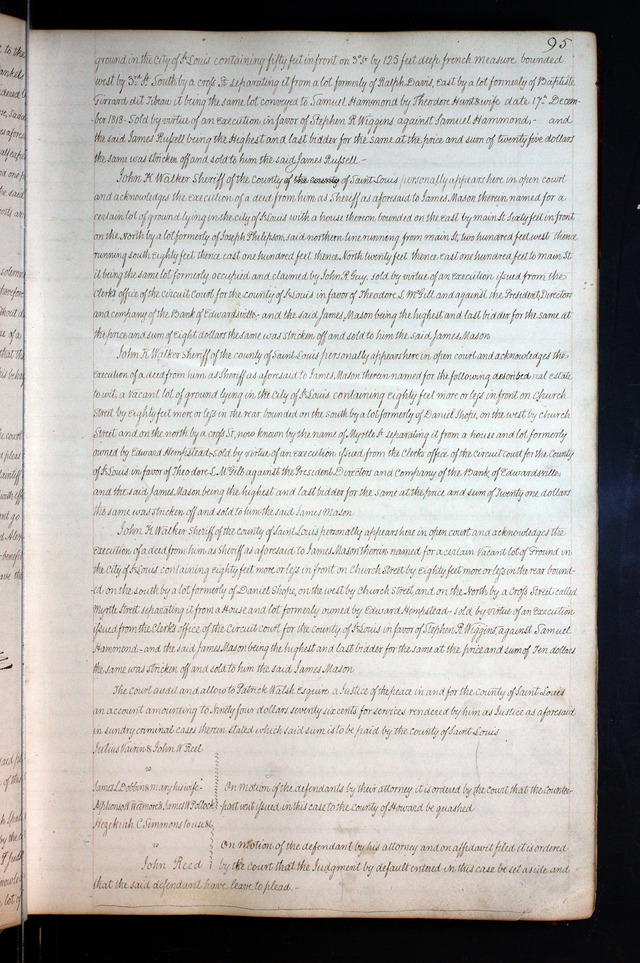 95
ground in the City of St Louis containing fifty feet in front on 3d St by 125 feet deep french measure bounded
west by 3rd St South by a cross St separating it from a lot formerly of Ralph Davis, East by a lot formerly of Baptiste
Girrard dit Tibeau it being the same lot conveyed to Samuel Hammond by Theodore Hunt & wife date 17th Decem-
ber 1818- Sold by virtue of an execution in favor of Stephen R. Wiggins against Samuel Hammond, - and
the said James Russell being the Highest and last bidder for the same at the price and sum of twenty five dollars
the same was stricken off and sold to him the said James Russell -
John K Walker Sheriff of the County of the county of Saint Louis personally appears here in open court
and acknowledges the execution of a deed from him as Sheriff as aforesaid to James Mason therein named for a
certain lot of ground lying in the city of St Louis with a house thereon bounded on the east by main St Sixty feet in front
on the North by a lot formerly of Joseph Philipson, said northern line running from main St, two hundred feet west thence
running south Eighty feet thence east one hundred feet thence North twenty feet thence east one hundred feet to main St
it being the same lot formerly occupied and claimed by John R. Guy, sold by virtue of an Execution issued from the
Clerks office of the circuit Court for the county of St Louis in favor of Theodore L McGill and against the President, Directors
and company of the Bank of Edwardsville, - and the said James Mason being the highest and last bidder for the same at
the price and sum of Eight dollars the same was stricken off and sold to him the said James Mason
John K Walker Sheriff of the county of Saint Louis personally appears here in open court and acknowledges the
execution of a deed from him as Sheriff as aforesaid to James Mason therein named for the following described real estate
to wit, a vacant lot of ground lying in the City of St Louis containing eighty feet more or less in front on Church
Street by Eighty feet more or less in the rear bounded on the south by a lot formerly of Daniel Shope, on the west by Church
Street and on the north by a cross St, now known by the name of Myrtle St separating it from a house and lot formerly
owned by Edward Hempstead, sold by virtue of an execution issued from the Clerks office of the Circuit Court for the County
of St Louis in favor of Theodore L. McGill against the President Directors and Company of the Bank of Edwardsville
and the said James Mason being the highest and last bidder for the same at the price and sum of Twenty one dollars
the same was stricken off and sold to him the said James Mason
John K Walker Sheriff of the county of Saint Louis personally appears here in open court and acknowledges the
execution of a deed from him as sheriff as aforesaid to James Mason therein named for a certain Vacant lot of Ground in
the City of St Louis containing eighty feet more or less in front on Church Street by Eighty feet more or less in the rear bound-
ed on the south by a lot formerly of Daniel Shope, on the west by Church Street, and on the North by a Cross Street called
Myrtle Street separating it from a House and lot formerly owned by Edward Hempstead - sold by virtue of an Execution
issued from the Clerks office of the Circuit court for the county of St Louis in favor of Stephen R. Wiggins, against Samuel
Hammond - and the said James Mason being the highest and last bidder for the same at the price and sum of Ten dollars
the same was stricken off and sold to him the said James Mason
The Court audit and allow to Patrick Walsh Esquire a Justice of the peace in and for the county of Saint Louis
an account amounting to Ninety four dollars seventy six cents for services rendered by him as Justice as aforesaid
in sundry criminal cases therein stated which said sum is to be paid by the county of Saint Louis
Julius Vairin & John W Reel
vs
James L Dobbin & mary his wife
On motion of the defendants by their attorney it is ordered by the court that the Counter-
Alphonso Wetmore & James W Pollock
part writ issued in this case to the county of Howard be quashed
Hezekiah C Simmons to use &
vs
On motion of the defendant by his attorney and on affidavit filed it is ordered
John Reed
by the Court that the Judgment by default entered in this case be set aside and
that the said defendant have leave to plead. -